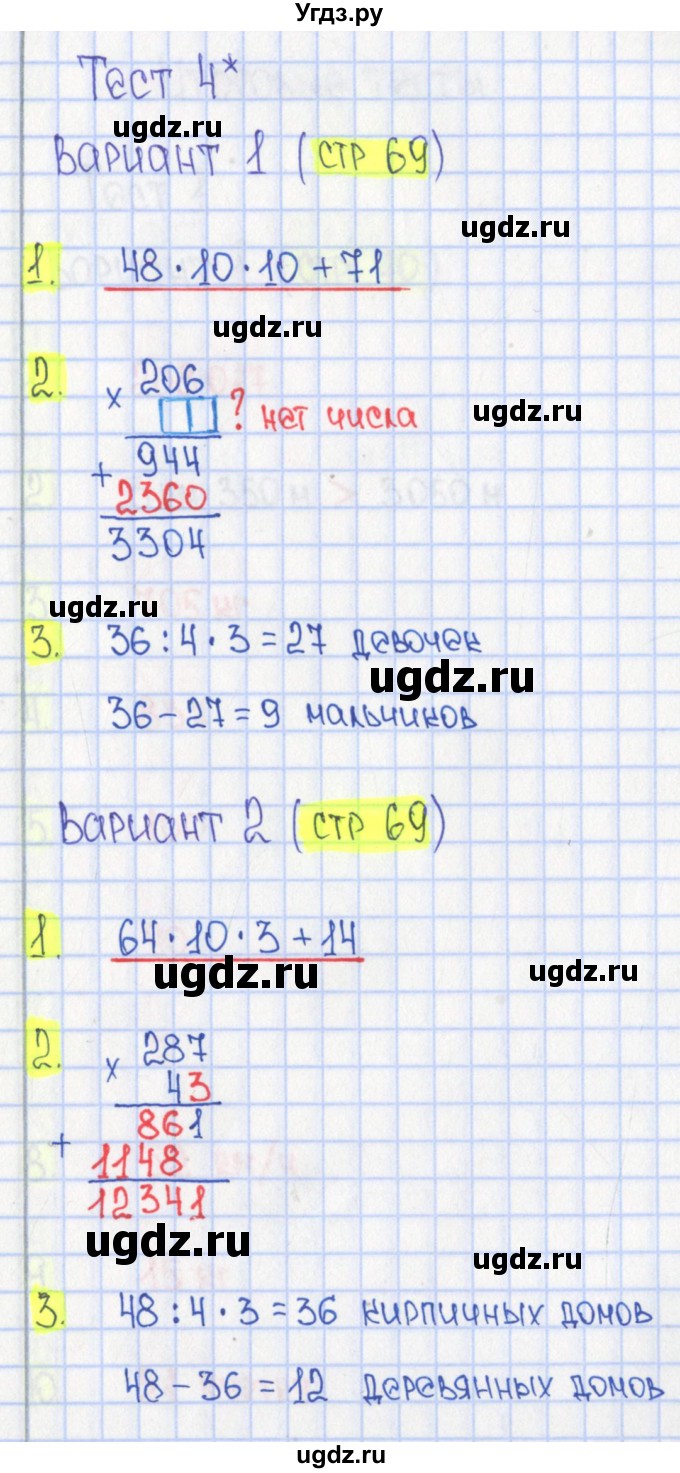 Угдз.ру
Тест 4*
ugdz.ru
Вариант 1 (стр 69)
ugdz.ru
1. 48·10·10+71
ugdz.ru
2. × 206
? нет числа
ugdz.ru
944
+ 2360
3304
ugdz.ru
3. 36:4·3=27 девочек
ugdz.ru
36-27=9 мальчиков
Вариант 2 (стр 69)
1. 64·10·3+14
ugdz.ru
ugdz.ru
2. × 287
43
861
+ 1148
12341
ugdz.ru
ugdz.ru
3. 48:4·3=36 кирпичных домов
48-36=12 деревянных домов
ugdz.ru